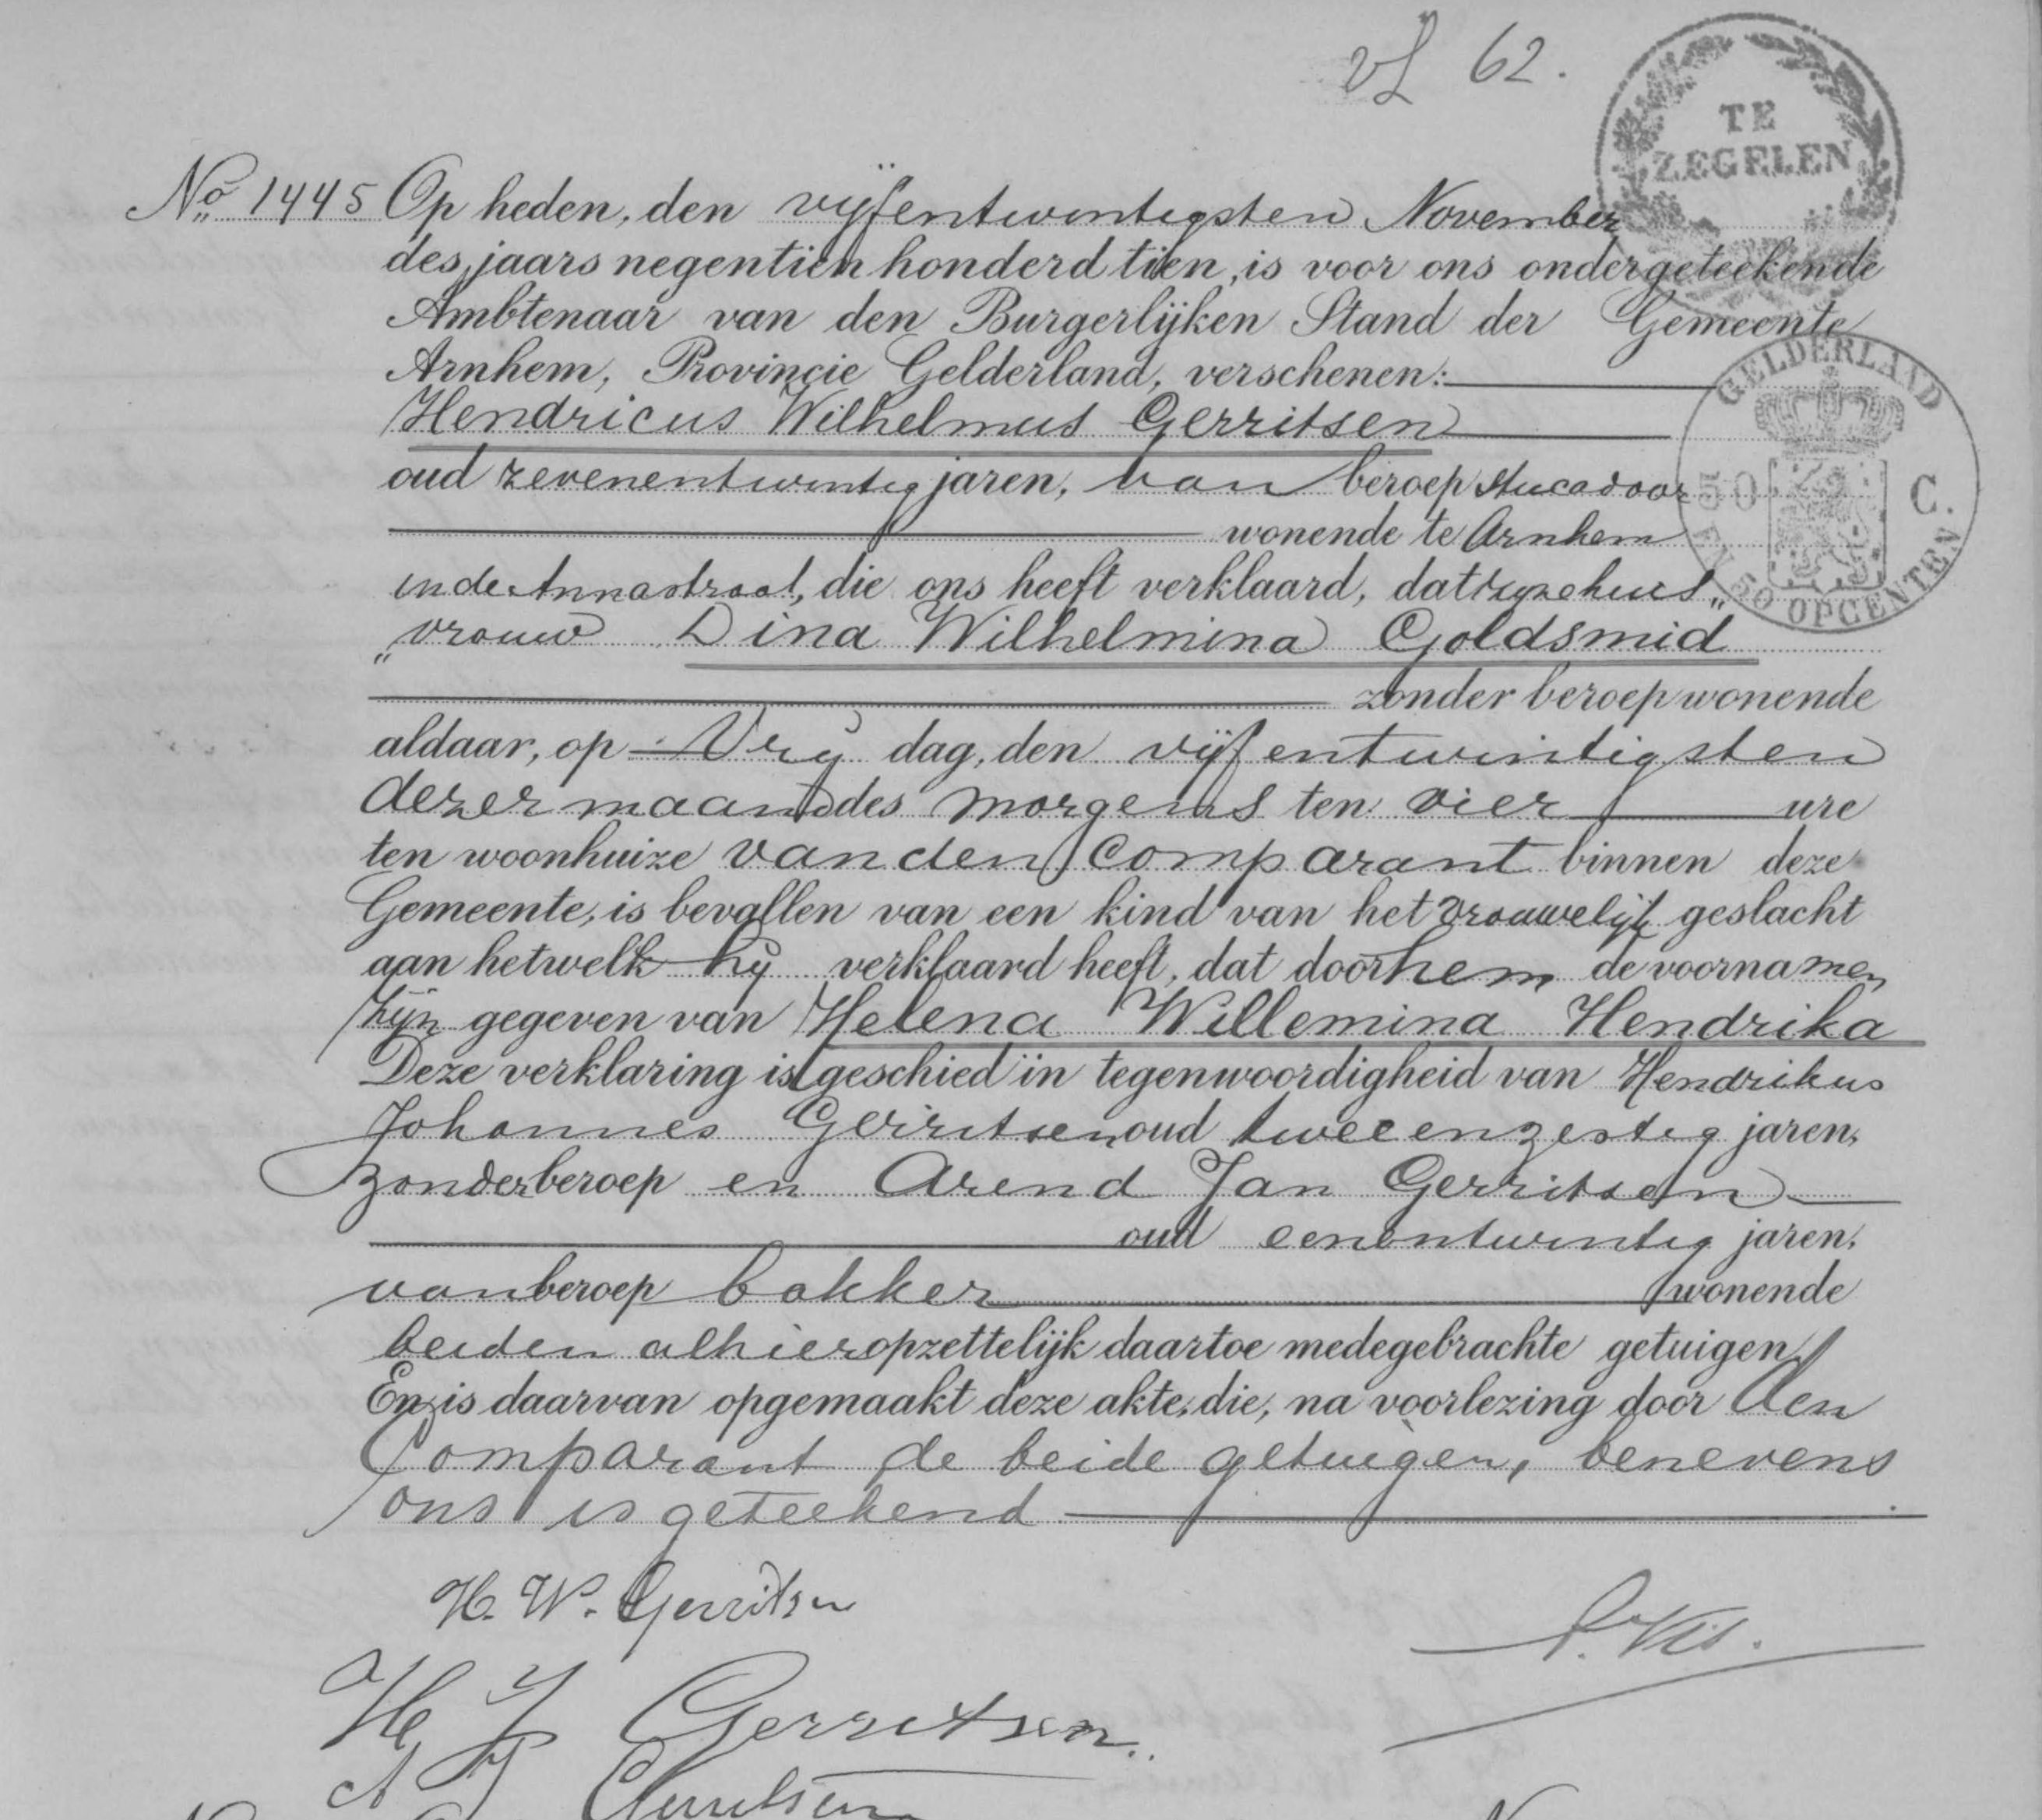 vL 62.
TE
ZEGELEN
No 1445 Op heden, den vijfentwintigsten November
des jaars negentien honderd tien, is voor ons ondergeteekende
Ambtenaar van den Burgerlijken Stand der Gemeente
Arnhem, Provincie Gelderland, verschenen:
GELDERLAND
Hendricus Wilhelmus Gerritsen
oud zevenentwintig jaren, van beroep stucadoor
50 C.
wonende te Arnhem
in de Annastraat, die ons heeft verklaard, dat zijne huis„
EN 50 OPCENTEN
„vrouw Dina Wilhelmina Goldsmid
zonder beroep wonende
aldaar, op Vrij dag, den vijfentwintigsten
dezer maand des morgens ten vier ure
ten woonhuize van den Comparant binnen deze
Gemeente, is bevallen van een kind van het vrouwelijk geslacht
aan hetwelk hij verklaard heeft, dat door hem de voornamen
zijn gegeven van Helena Willemina Hendrika
Deze verklaring is geschied in tegenwoordigheid van Hendrikus
Johannes Gerritsen oud tweeenzestig jaren,
zonder beroep en Arend Jan Gerritsen
oud eenentwintig jaren,
van beroep bakker wonende
beiden alhier opzettelijk daartoe medegebrachte getuigen
En is daarvan opgemaakt deze akte, die, na voorlezing door den
Comparant de beide getuigen, benevens
ons is geteekend
H. W. Gerritsen
H J Gerritsen
A J Gerritsen